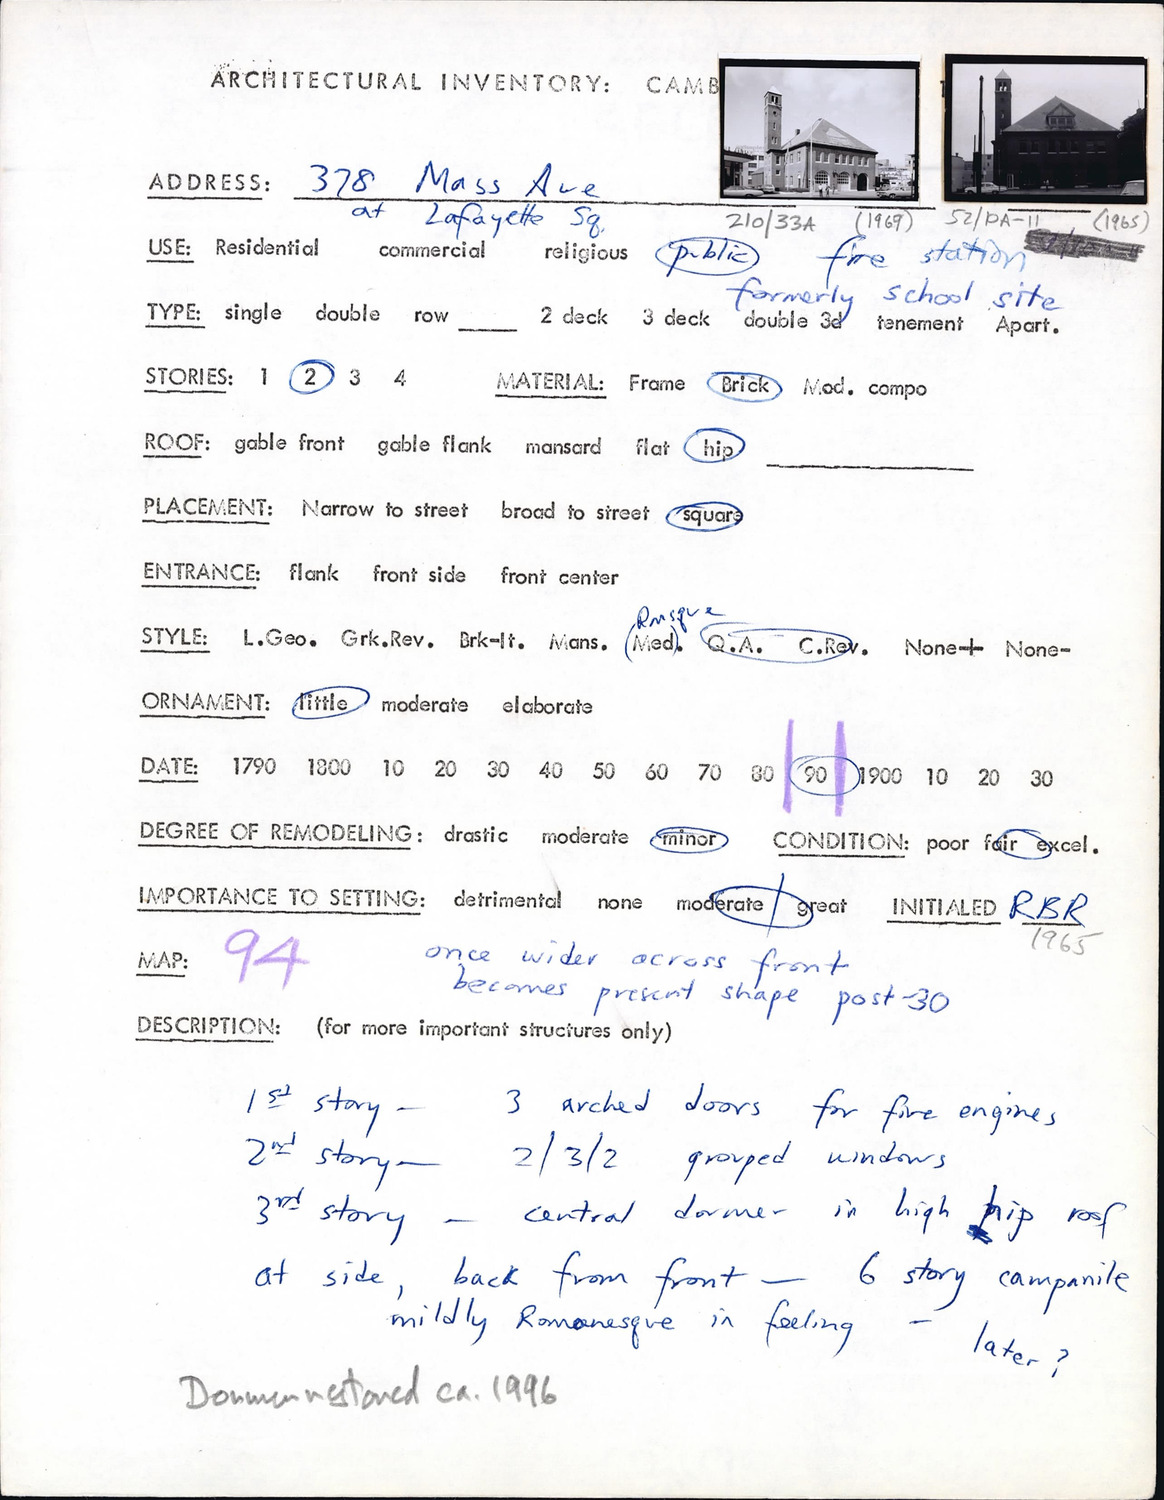 ARCHITECTURAL INVENTORY: CAMB
ADDRESS: 378 Mass Ave
at Lafayette Sq.
210/33A (1969) 52/DA-11 (1965)
USE: Residential commercial religious public fire station
formerly school site
TYPE: single double row ____ 2 deck 3 deck double 3d tenement Apart.
STORIES: 1 2 3 4 MATERIAL: Frame Brick Mod. compo
ROOF: gable front gable flank mansard flat hip ____
PLACEMENT: Narrow to street broad to street square
ENTRANCE: flank front side front center
Rmsque
STYLE: L.Geo. Grk.Rev. Brk-It. Mans. (Med). Q.A. C.Rev. None+ None-
ORNAMENT: little moderate elaborate
DATE: 1790 1800 10 20 30 40 50 60 70 80 90 1900 10 20 30
DEGREE OF REMODELING: drastic moderate minor CONDITION: poor fair excel.
IMPORTANCE TO SETTING: detrimental none moderate great INITIALED RBR
1965
MAP: 94 once wider across front
becomes present shape post-30
DESCRIPTION: (for more important structures only)
1st story — 3 arched doors for fire engines
2nd story — 2/3/2 grouped windows
3rd story — central dormer in high hip roof
at side, back from front — 6 story campanile
mildly Romanesque in feeling — later?
Dormer restored ca. 1996